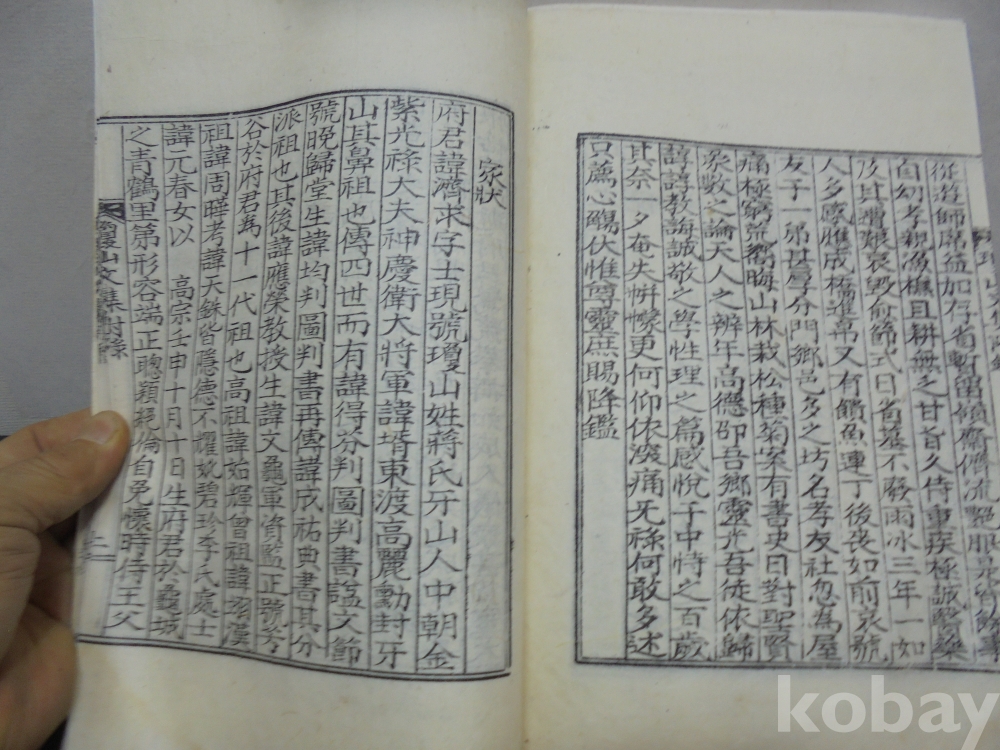 從遊師席益加存省暫留
自幼孝親漁樵且耕無乏甘旨久侍重疾極誠醫藥
及其遭艱哀毀兪篩式日省墓不廢雨氷三年一如
人多感惟成橋進帛又有饋魚連丁後喪如前哀號
友于一弟甚學分門鄕邑多之坊名孝友社忽為屋
痛極窮荒嚮晦山林栽松種菊案有書史日對聖賢
衆數之論天人之辨年高德邵吾鄕靈光吾徒依歸
諄諄敎誨誠敬之學性理之篇感悅于中恃之百歲
其奈一夕奄失帡幪更何仰依深痛无祿何敢多述
只薦心觴伏惟尊靈庶賜降鑑
家狀
府君諱濟求字士現號瓊山姓蔣氏牙山人中朝金
紫光祿大夫神慶衛大將軍諱壻東渡高麗勳封牙
山其鼻祖也傳四世而有諱得分判圖判書諡文節
號晚歸堂生諱均判圖判書再傳諱成祐典書其分
派祖也其後諱應榮敎授生諱文龜軍資監正號芳
谷於府君爲十一代祖也高祖諱如輝曾祖諱翊漢
祖諱周曄考諱大銖皆隱德不耀妣碧珍李氏處士
諱元春女以 高宗壬申十月十日生府君於龜城
之青鶴里第形容端正聰穎絶倫自免懷時侍王父
瓊山文集附錄
十一
kobay